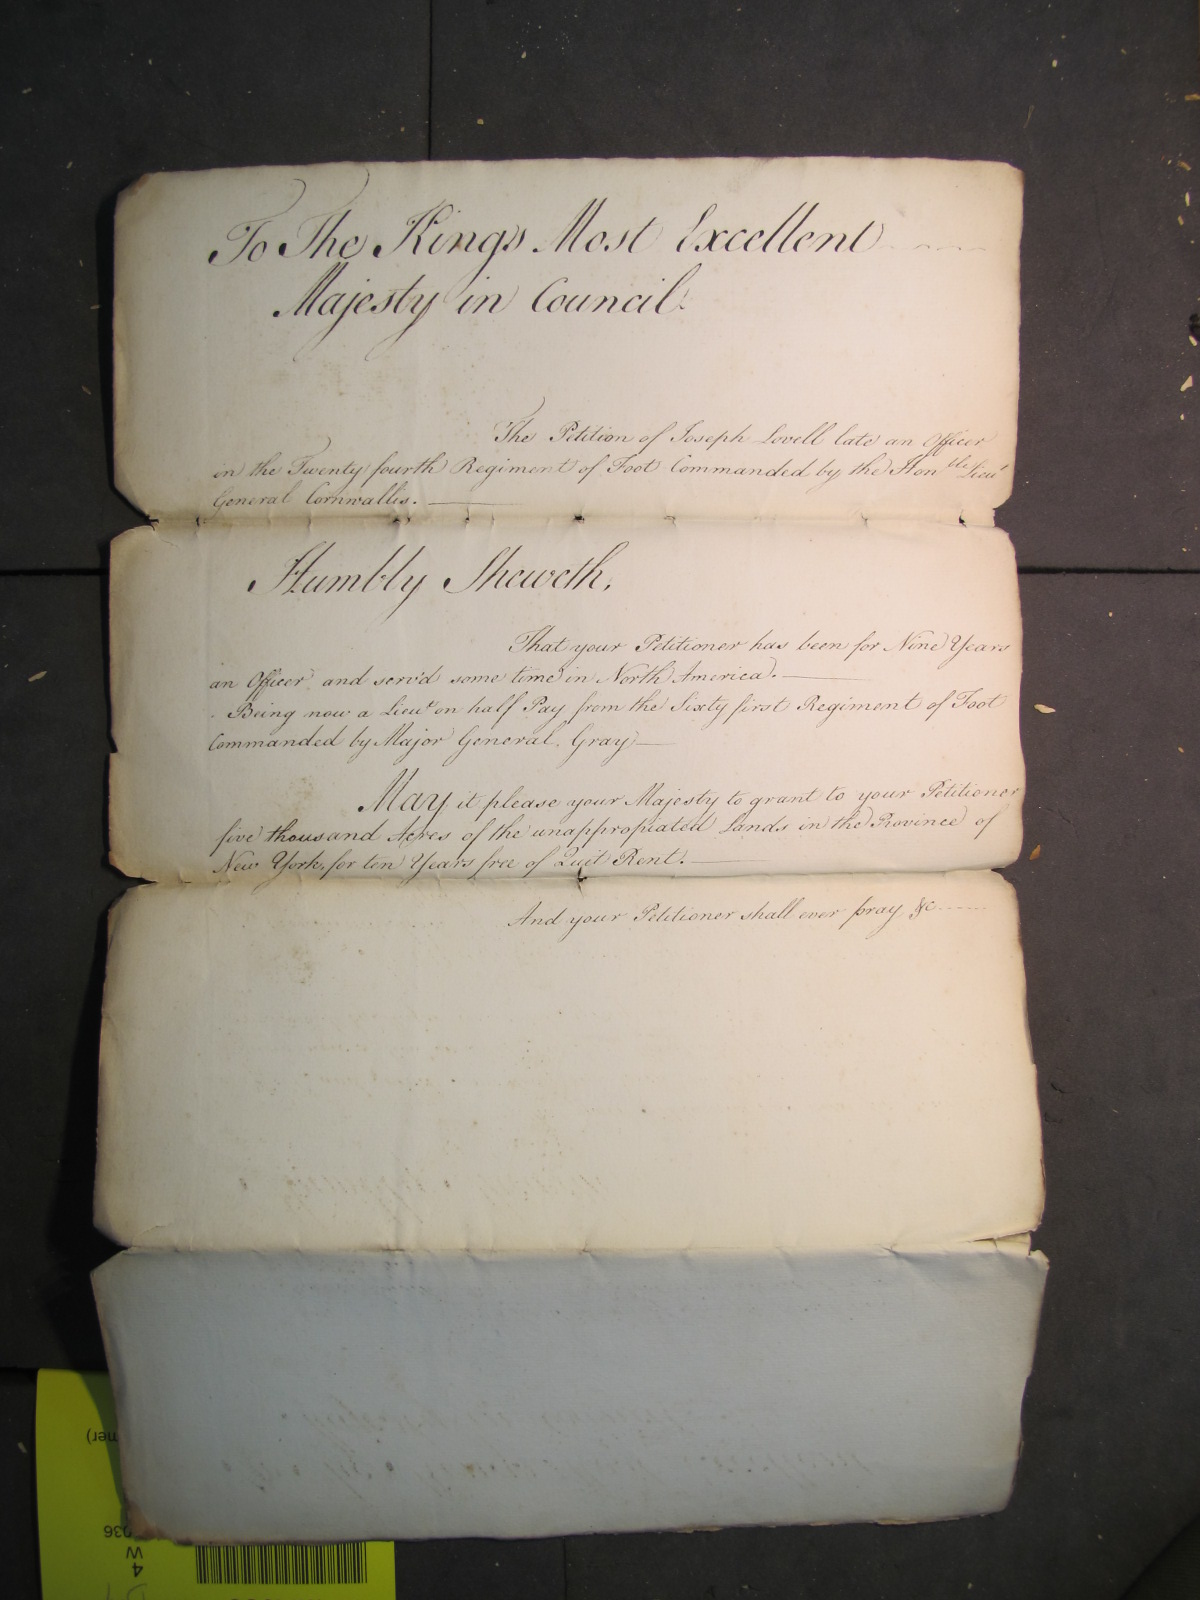 To The Kings Most Excellent
Majesty in Council.
The Petition of Joseph Lovell late an Officer
in the Twenty fourth Regiment of Foot Commanded by the Honble Lieut
General Cornwallis.
Humbly Sheweth,
That your Petitioner has been for Nine Years
an Officer and serv'd some time in North America.
Being now a Lieut on half Pay from the Sixty first Regiment of Foot
Commanded by Major General Gray
May it please your Majesty to grant to your Petitioner
five thousand Acres of the unappropiated Lands in the Province of
New York, for ten Years free of Quit Rent.
And your Petitioner shall ever pray &c
mer)
036
W
4